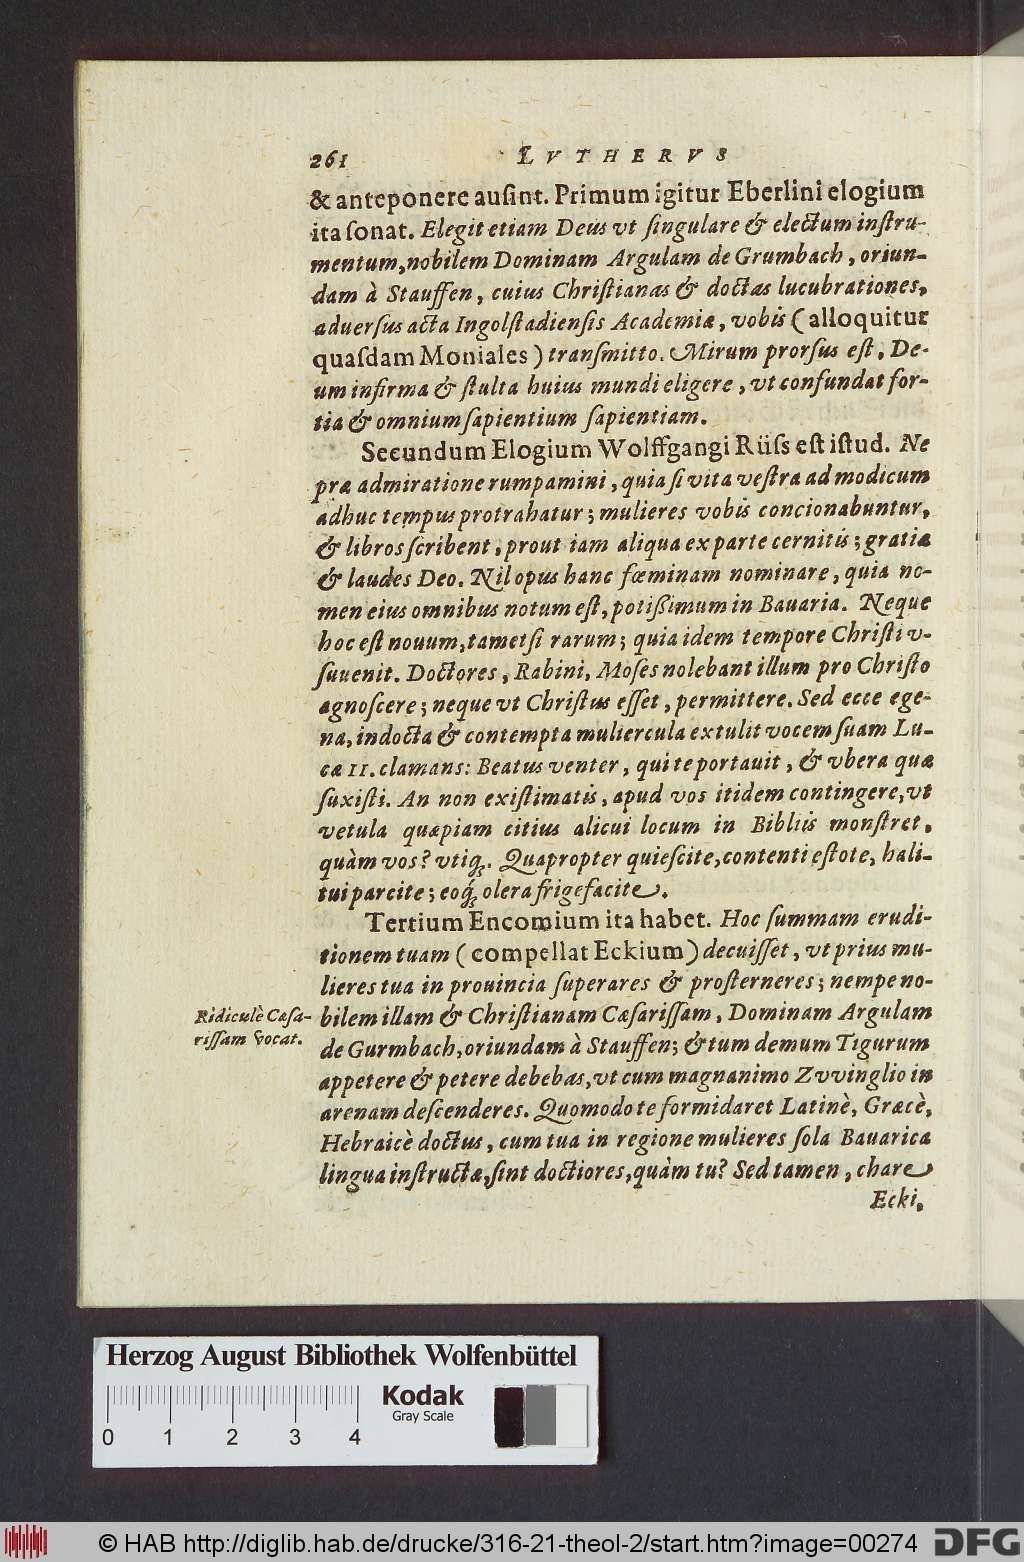 261 LVTHERVS
& anteponere auſint. Primum igitur Eberlini elogium
ita ſonat. Elegit etiam Deus vt ſingulare & electum inſtru-
mentum, nobilem Dominam Argulam de Grumbach, oriun-
dam à Stauffen, cuius Chriſtianas & doctas lucubrationes,
aduerſus acta Ingolſtadienſis Academiæ, vobis (alloquitur
quaſdam Moniales) tranſmitto. Mirum prorſus eſt, De-
um infirma & ſtulta huius mundi eligere, vt confundat for-
tia & omnium ſapientium ſapientiam.
Secundum Elogium Wolffgangi Rüſs eſt iſtud. Ne
præ admiratione rumpamini, quia ſi vita veſtra ad modicum
adhuc tempus protrahatur; mulieres vobis concionabuntur,
& libros ſcribent, prout iam aliqua ex parte cernitis; gratiæ
& laudes Deo. Nil opus hanc fœminam nominare, quia no-
men eius omnibus notum eſt, potißimum in Bauaria. Neque
hoc eſt nouum, tametſi rarum; quia idem tempore Chriſti v-
ſuuenit. Doctores, Rabini, Moſes nolebant illum pro Chriſto
agnoſcere; neque vt Chriſtus eſſet, permittere. Sed ecce ege-
na, indocta & contempta muliercula extulit vocem ſuam Lu-
cæ 11. clamans: Beatus venter, qui te portauit, & vbera quæ
ſuxiſti. An non exiſtimatis, apud vos itidem contingere, vt
vetula quæpiam citius alicui locum in Bibliis monſtret,
quàm vos? vtiq́;. Quapropter quieſcite, contenti eſtote, hali-
tui parcite; eoq́; olera frigefacite.
Tertium Encomium ita habet. Hoc ſummam erudi-
tionem tuam (compellat Eckium) decuiſſet, vt prius mu-
lieres tua in prouincia ſuperares & proſterneres; nempe no-
Ridiculè Cæſa-
riſſam vocat.
bilem illam & Chriſtianam Cæſariſſam, Dominam Argulam
de Gurmbach, oriundam à Stauffen; & tum demum Tigurum
appetere & petere debebas, vt cum magnanimo Zvvinglio in
arenam deſcenderes. Quomodo te formidaret Latinè, Græcè,
Hebraicè doctus, cum tua in regione mulieres ſola Bauarica
lingua inſtructæ, ſint doctiores, quàm tu? Sed tamen, chare
Ecki,
Herzog August Bibliothek Wolfenbüttel
Kodak
Gray Scale
0 1 2 3 4
© HAB http://diglib.hab.de/drucke/316-21-theol-2/start.htm?image=00274 DFG